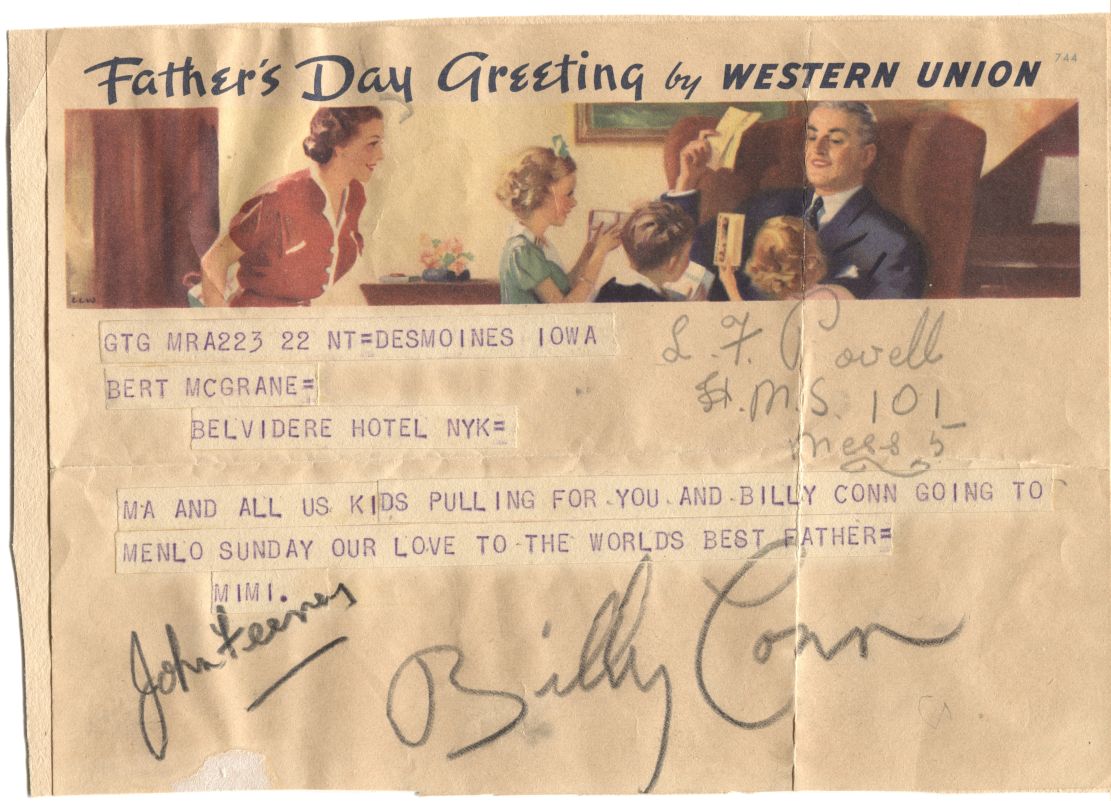 Father's Day Greeting by WESTERN UNION
744
CCW
GTG MRA223 22 NT=DESMOINES IOWA
BERT MCGRANE=
BELVIDERE HOTEL NYK=
L. F. Powell
H.M.S. 101
Mess 5
MA AND ALL US KIDS PULLING FOR YOU AND BILLY CONN GOING TO
MENLO SUNDAY OUR LOVE TO THE WORLDS BEST FATHER=
MIMI.
John Feeney
Billy Conn